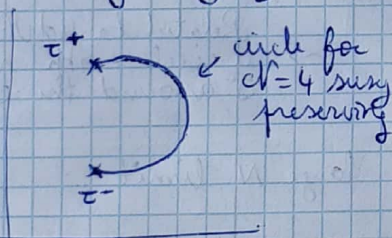 τ+
circle for
N=4 susy
preserving
τ-